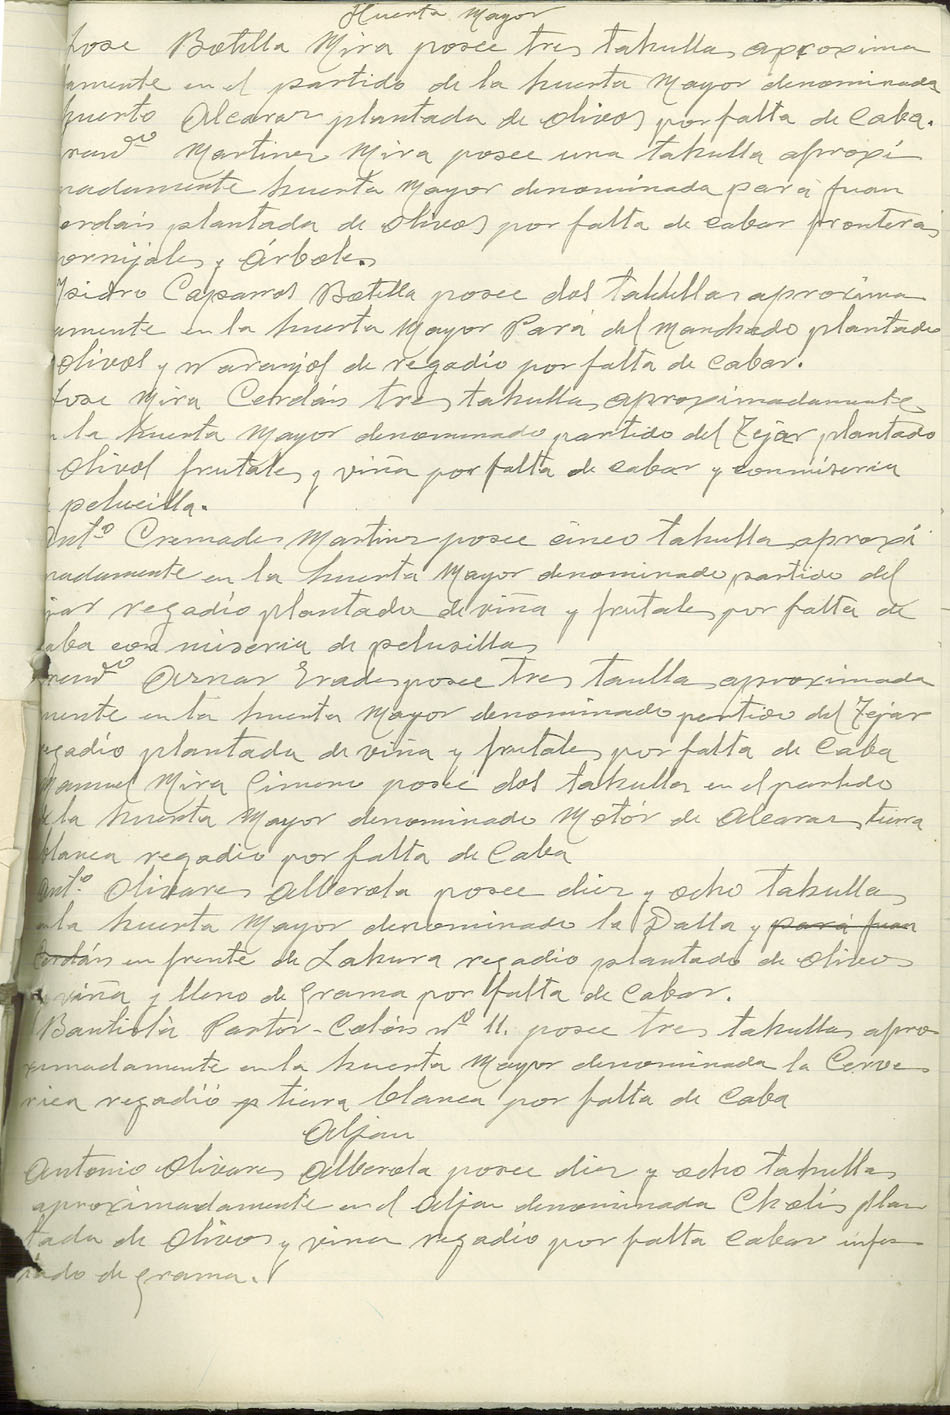 Huerta Mayor
Jose Botella Mira posee tres tahullas aproxima
damente en el partido de la huerta Mayor denominada
huerto Alcaraz plantada de olivos por falta de Caba.
Martinez Mira posee una tahulla aproxi
madamente huerta Mayor denominada pará Juan
Cerdán plantada de olivos por falta de cabar fronteras
cornijales y Árboles
Isidro Caparros Botella posee dos tahullas aproxima
damente en la huerta Mayor Pará del Manchado plantado
olivos y Naranjos de regadio por falta de Cabar.
Jose Mira Cerdán tres tahullas aproximadamente
en la huerta Mayor denominado partido del Tejar plantado
olivos frutales y viña por falta de cabar y con miseria
pelucilla.
Antº Cremades Martinez posee cinco tahullas aproxi
madamente en la huerta Mayor denominado partido del
Tejar regadío plantado de viña y frutales por falta de
caba con miseria de pelusilla
Aznar posee tres taullas aproximada
mente en la huerta Mayor denominado partido del Tejar
regadío plantada de viña y frutales por falta de Caba
Manuel Mira Gimeno posee dos tahullas en el partido
de la huerta Mayor denominado Motór de Alcaraz tierra
blanca regadio por falta de Caba
Antº Olivares Alberola posee diez y ocho tahullas
en la huerta Mayor denominado la Dalla y pará Juan
Cerdán en frente de Lahura regadio plantado de olivos
viña y lleno de grama por falta de Cabar.
Bautista Pastor - Colón nº 11. posee tres tahullas apro-
ximadamente en la huerta Mayor denominada la Cerve
rica regadío tierra blanca por falta de Caba
Aljau
Antonio Olivares Alberola posee diez y ocho tahullas
aproximadamente en el Aljau denominada Chelís plan
tada de Olivos y vina regadío por falta cabar infes
tado de grama.